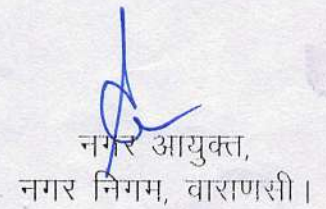 नगर आयुक्त,
नगर निगम, वाराणसी।